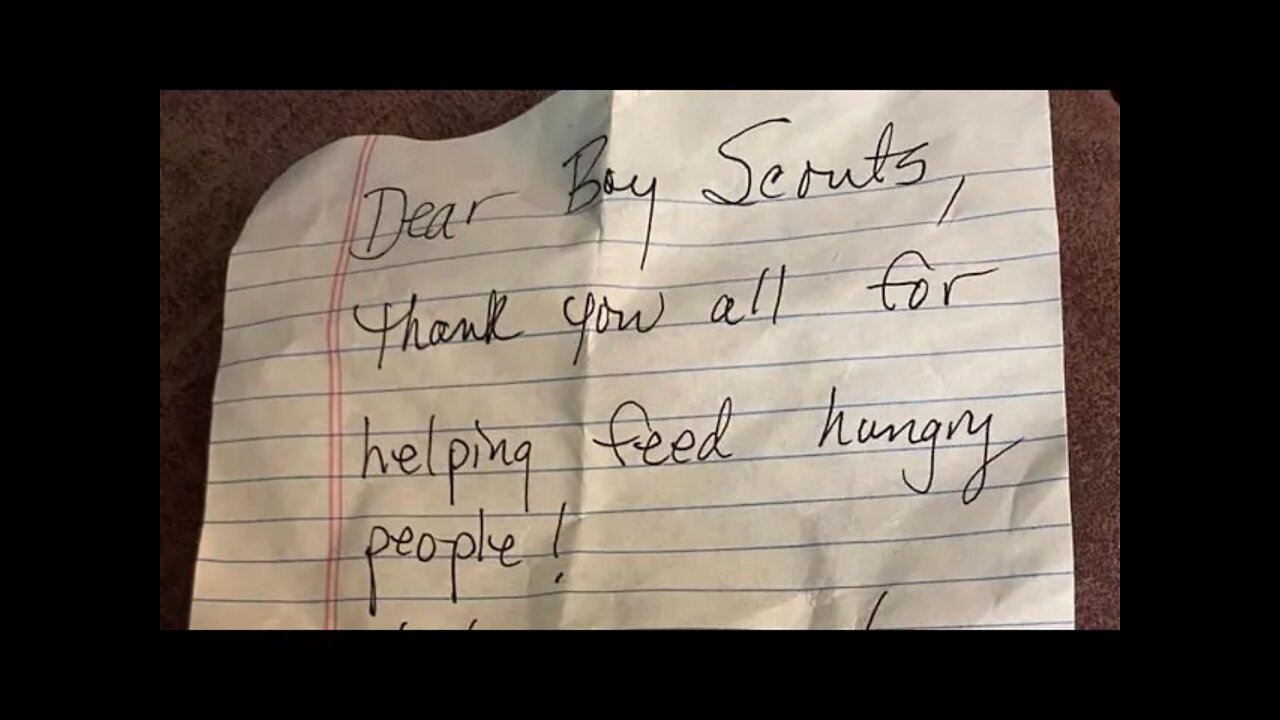 Dear Boy Scouts,
Thank you all for
helping feed hungry
people!